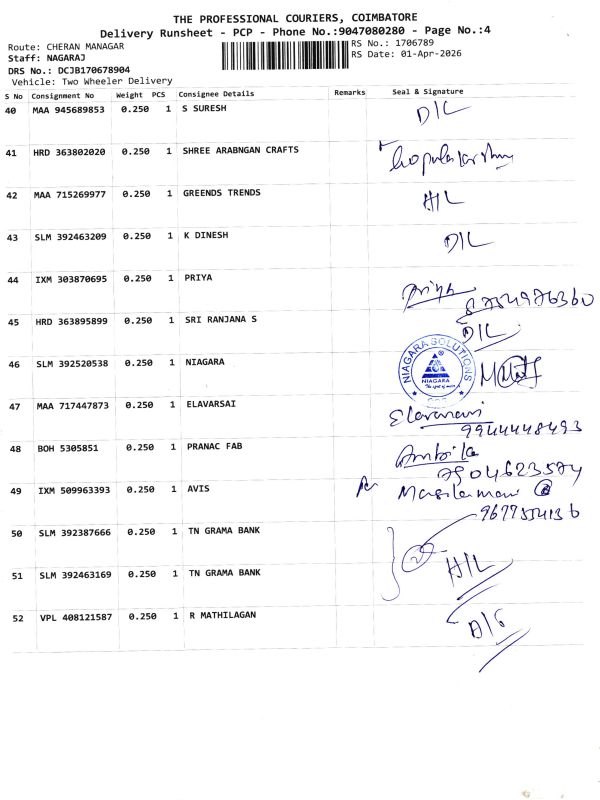 THE PROFESSIONAL COURIERS, COIMBATORE
Delivery Runsheet - PCP - Phone No.:9047080280 - Page No.:4
Route: CHERAN MANAGAR
RS No.: 1706789
Staff: NAGARAJ
RS Date: 01-Apr-2026
DRS No.: DCJB170678904
Vehicle: Two Wheeler Delivery
S No Consignment No Weight PCS Consignee Details Remarks Seal & Signature
40 MAA 945689853 0.250 1 S SURESH D/L
41 HRD 363802020 0.250 1 SHREE ARABNGAN CRAFTS
42 MAA 715269977 0.250 1 GREENDS TRENDS H/L
43 SLM 392463209 0.250 1 K DINESH D/L
44 IXM 303870695 0.250 1 PRIYA Priya
8754976360
45 HRD 363895899 0.250 1 SRI RANJANA S D/L
46 SLM 392520538 0.250 1 NIAGARA NIAGARA SOLUTIONS
NIAGARA
47 MAA 717447873 0.250 1 ELAVARSAI
9944448493
48 BOH 5305851 0.250 1 PRANAC FAB
7504623574
49 IXM 509963393 0.250 1 AVIS
50 SLM 392387666 0.250 1 TN GRAMA BANK
51 SLM 392463169 0.250 1 TN GRAMA BANK H/L
52 VPL 408121587 0.250 1 R MATHILAGAN